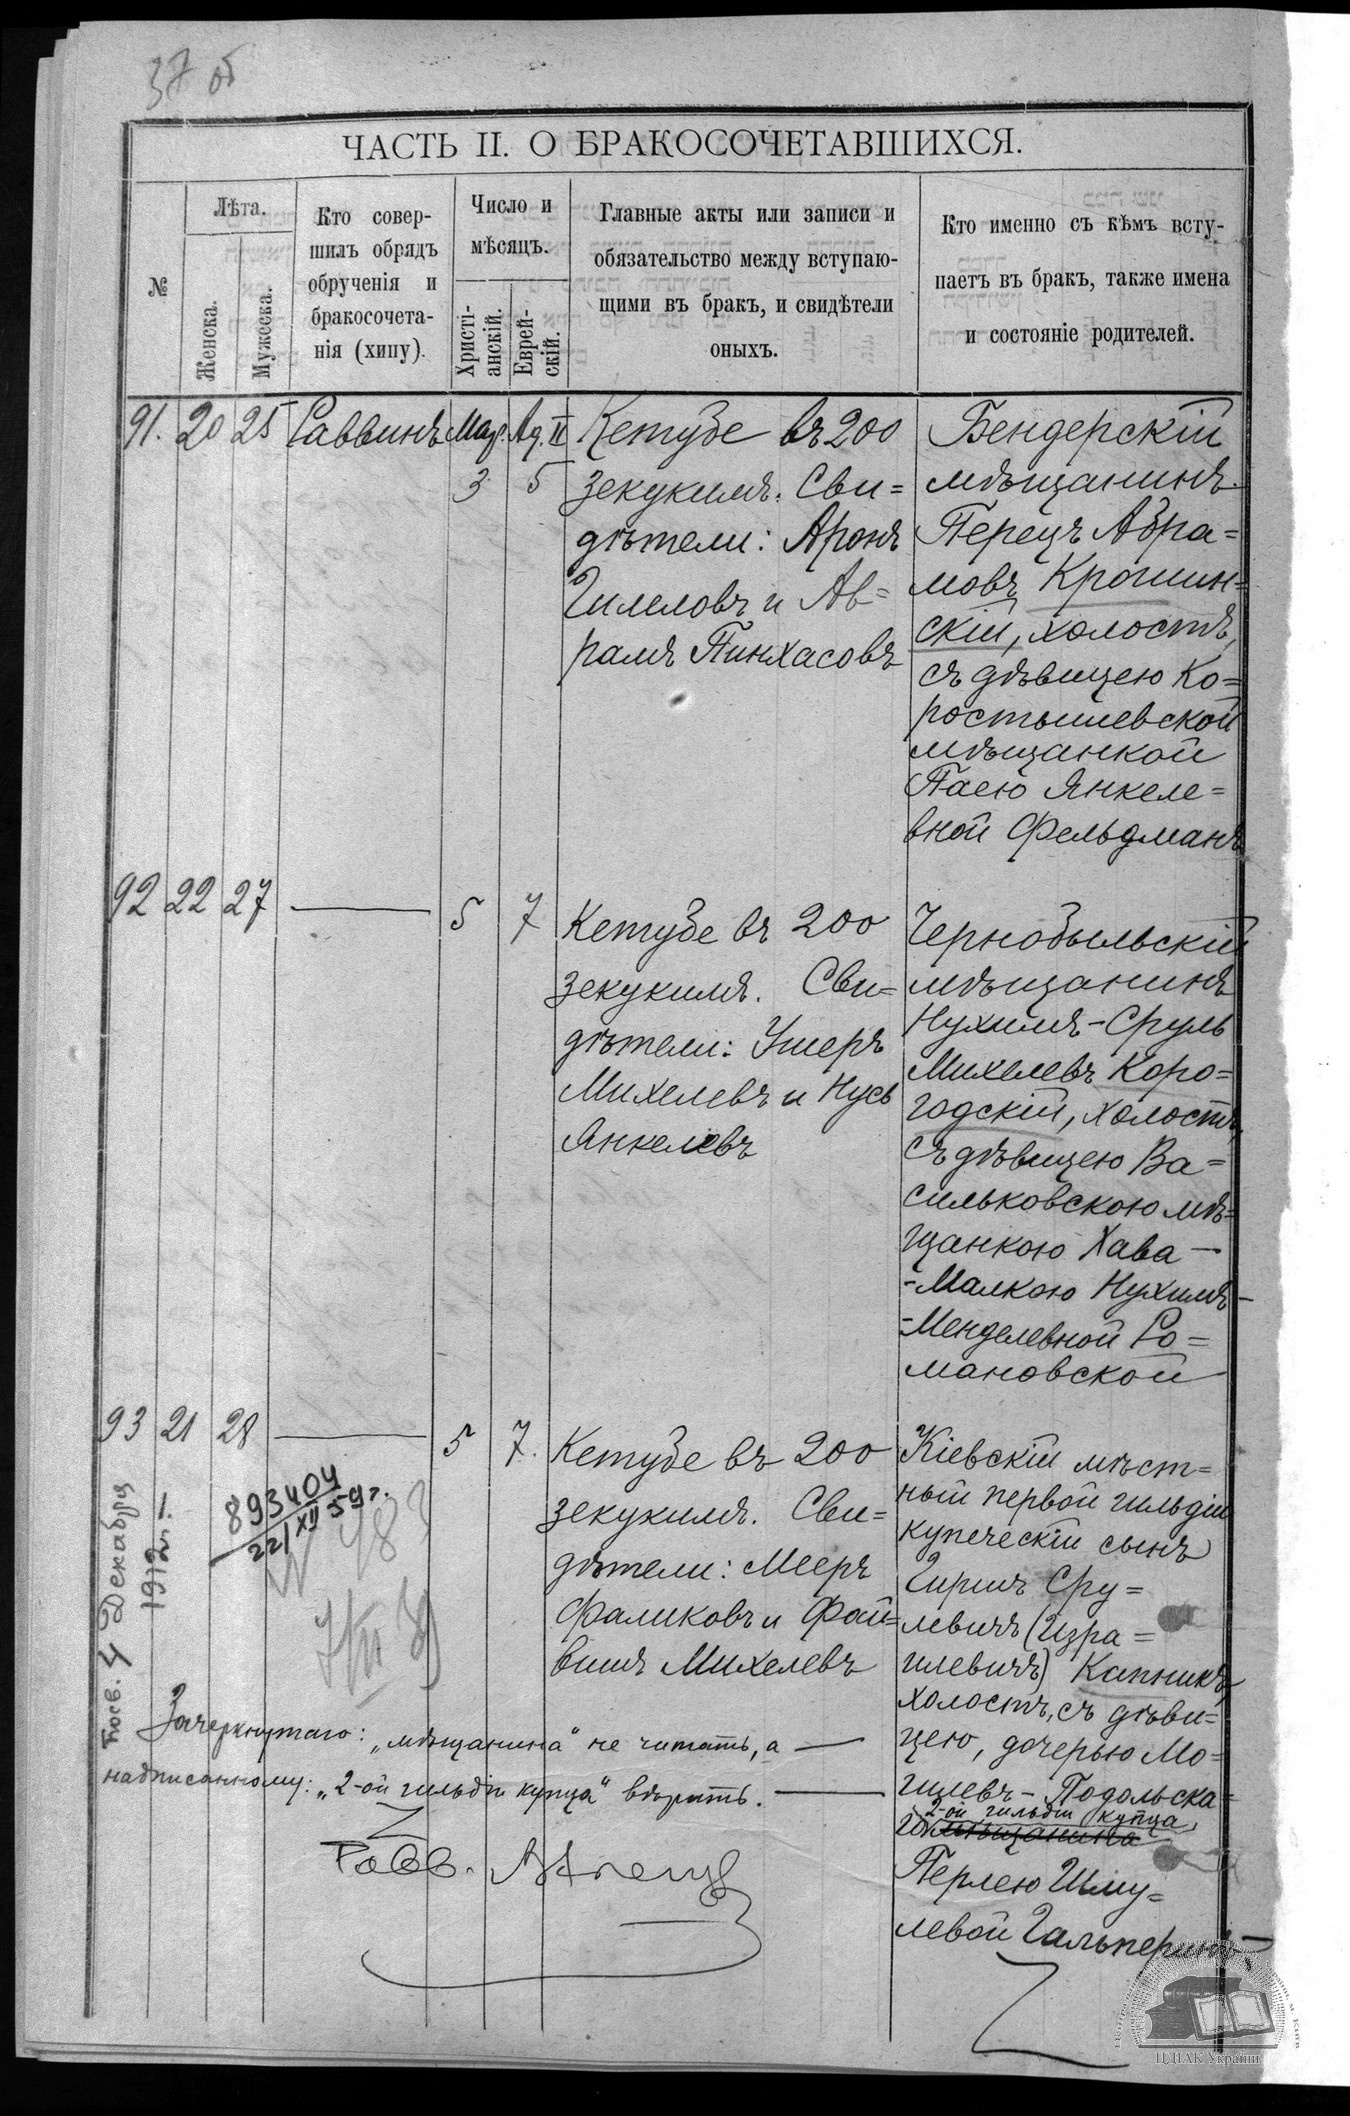 37 об
ЧАСТЬ II. О БРАКОСОЧЕТАВШИХСЯ.
№
Лѣта.
Женска.
Мужеска.
Кто совер-
шилъ обрядъ
обрученія и
бракосочета-
нія (хипу).
Число и
мѣсяцъ.
Христі-
анскій.
Еврей-
скій.
Главные акты или записи и
обязательство между вступаю-
щими въ бракъ, и свидѣтели
оныхъ.
Кто именно съ кѣмъ всту-
паетъ въ бракъ, также имена
и состояніе родителей.
91. 20 25 Раввинъ Мар. Ад. II
3 5
Кетубе въ 200
зекукимъ. Сви=
дѣтели: Аронъ
Гилеловъ и Ав=
рамъ Пинхасовъ
Бендерскій
мѣщанинъ
Перецъ Абра=
мовъ Крошин=
скій, холостъ,
съ дѣвицею Ко=
ростышевской
мѣщанкой
Паею Янкеле=
вной Фельдманъ
92 22 27 — 5 7
Кетубе въ 200
зекукимъ. Сви=
дѣтели: Ушеръ
Михелевъ и Нусь
Янкелевъ
Чернобыльскій
мѣщанинъ
Нухимъ-Сруль
Михелевъ Коро=
годскій, холостъ,
съ дѣвицею Ва=
сильковскою мѣ=
щанкою Хава—
-Малкою Нухимъ-
=Менделевной Ро=
мановской
93 21 28 — 5 7.
Кетубе въ 200
зекукимъ. Сви=
дѣтели: Мееръ
Фаликовъ и Фай=
вишъ Михелевъ
Кіевскій мѣст=
ный первой гильдіи
купеческій сынъ
Гиршъ Сру=
левичъ (Изра=
илевичъ) Капникъ,
холостъ, съ дѣви=
цею, дочерью Мо=
гилевъ-Подольска=
2-ой гильдіи купца,
го мѣщанина
Перлею Шму=
левой Гальперинъ
893404
22/XII 59 г.
4 Декабря
1912 г.
Зачеркнутаго: „мѣщанина" не читать, а —
надписанному: „2-ой гильдіи купца" вѣрить. —
Равв.
ЦДІАК України